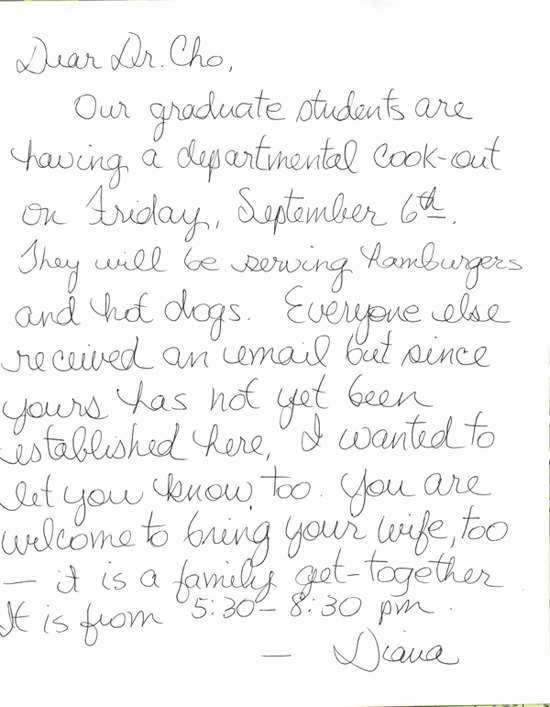 Dear Dr. Cho,
Our graduate students are
having a departmental cook-out
on Friday, September 6th.
They will be serving hamburgers
and hot dogs. Everyone else
received an email but since
yours has not yet been
established here, I wanted to
let you know, too. You are
welcome to bring your wife, too
— it is a family get-together
It is from 5:30 – 8:30 pm.
— Diana